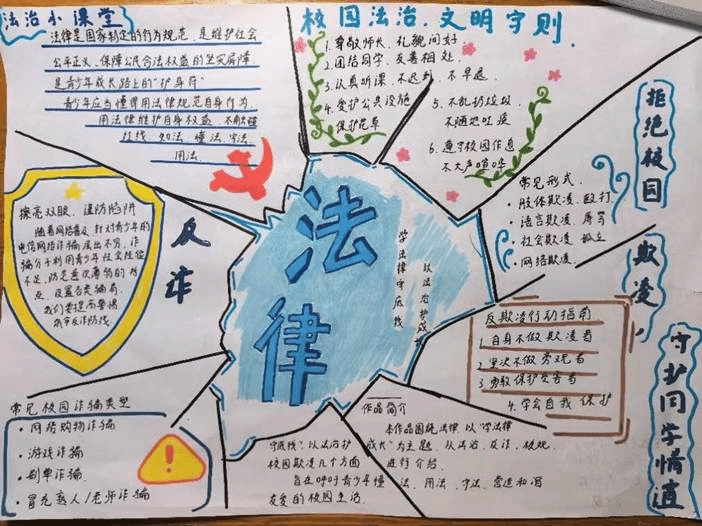 法治小课堂
法律是国家制定的行为规范，是维护社会
公平正义、保障公民合法权益的坚实屏障，
是青少年成长路上的“护身符”
青少年应当懂得用法律规范自身行为，
用法律维护自身权益，不触碰
红线，知法、懂法、守法、
用法。
校园法治，文明守则，
1. 尊敬师长，礼貌问好
2. 团结同学，友善相处
3. 认真听课，不迟到，不早退，
4. 爱护公共设施
保护花草
5. 不乱扔垃圾
不随地吐痰
6. 遵守校园作息
不大声喧哗
拒绝校园
欺凌，
守护同学情谊
常见形式，
· 肢体欺凌 殴打
· 语言欺凌 辱骂
· 社会欺凌 孤立
· 网络欺凌。
反欺凌行动指南
1. 自身不做欺凌者
2. 坚决不做旁观者
3. 勇敢保护受害者
4. 学会自我保护
反诈
擦亮双眼，谨防陷阱
随着网络普及，针对青少年的
电信网络诈骗层出不穷，诈
骗分子利用青少年社会经验
不足，防范意识薄弱的特
点，设置各类骗局，
我们要提高警惕，
筑牢反诈防线。
法律
学法律守底线
以法治护成长
常见校园诈骗类型
· 网络购物诈骗
· 游戏诈骗
· 刷单诈骗
· 冒充熟人/老师诈骗
作品简介
本作品围绕法律 以“学法律
守底线，以法治护成长”为主题，从法治、反诈、校规、
校园欺凌几个方面进行介绍，
旨在呼吁青少年懂法、用法、守法，营造和谐
友爱的校园生活。